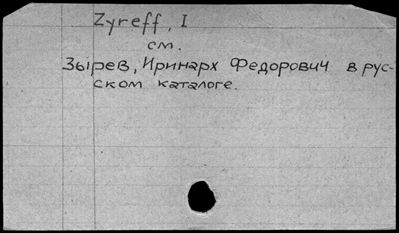 Zyreff, I
см.
Зырев, Иринарх Федорович в рус-
ском каталоге.